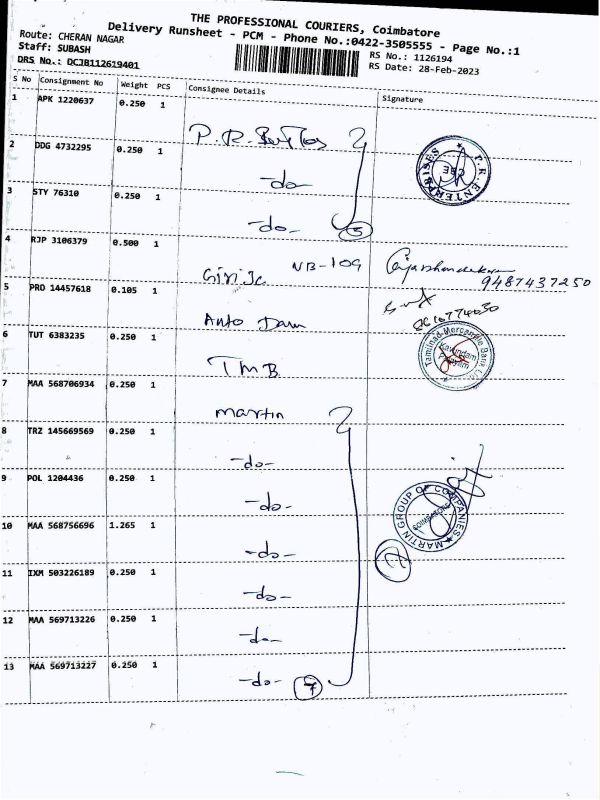 THE PROFESSIONAL COURIERS, Coimbatore
Delivery Runsheet - PCM - Phone No.:0422-3505555 - Page No.:1
Route: CHERAN NAGAR
Staff: SUBASH
DRS No.: DCJB112619401
RS No.: 1126194
RS Date: 28-Feb-2023
S No Consignment No Weight PCS Consignee Details Signature
1 APK 1220637 0.250 1 P.R.
2 DDG 4732295 0.250 1 -do-
3 STY 76310 0.250 1 -do- 3
P.R. ENTERPRISES
4 RJP 3106379 0.500 1 NB-109
9487437250
5 PRO 14457618 0.105 1 Anto
6 TUT 6383235 0.250 1 TMB
Tamilnad Mercantile Bank Ltd.
7 MAA 568706934 0.250 1 Martin
8 TRZ 145669569 0.250 1 -do-
9 POL 1204436 0.250 1 -do-
MARTIN GROUP OF COMPANIES
COIMBATORE
10 MAA 568756696 1.265 1 -do-
11 IXM 503226189 0.250 1 -do-
12 MAA 569713226 0.250 1 -do-
13 MAA 569713227 0.250 1 -do- 7